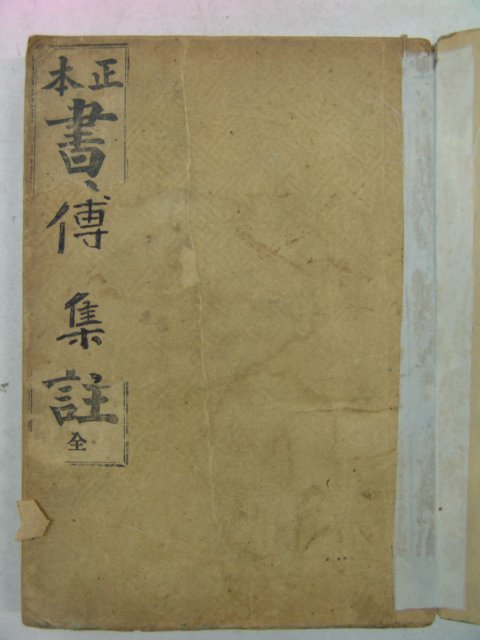 正本
書傳集註
全